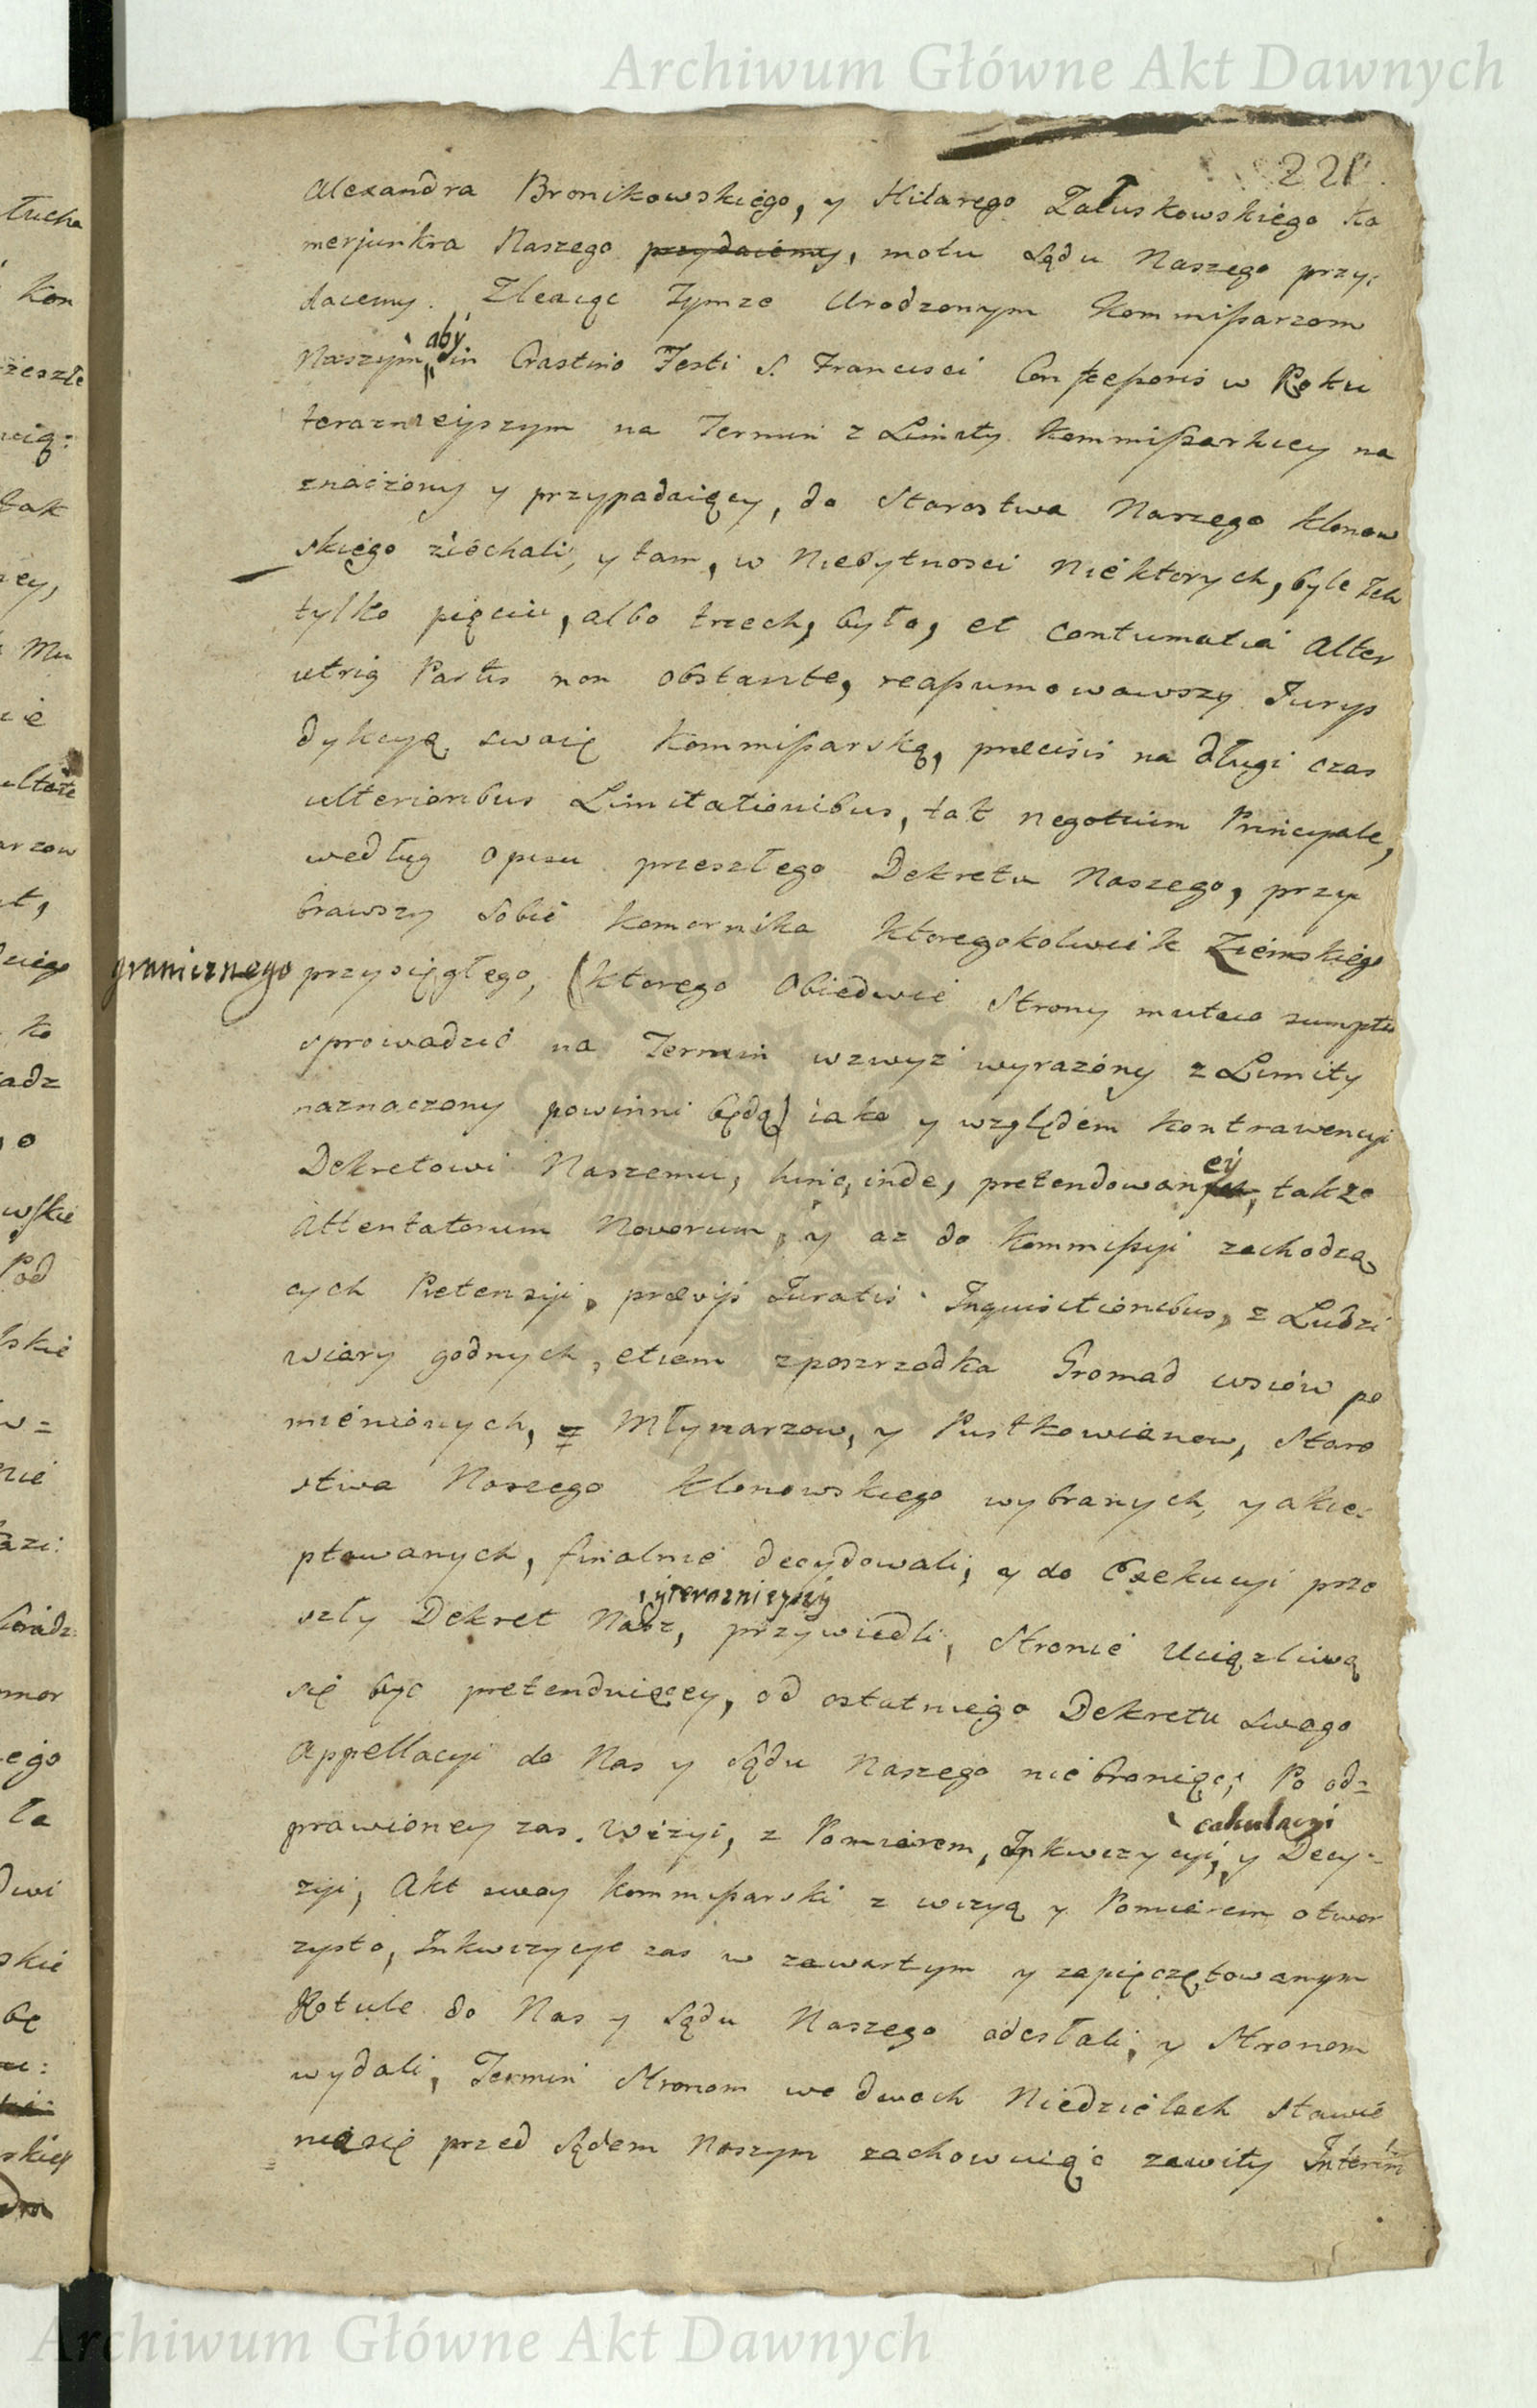 Archiwum Główne Akt Dawnych
221
Alexandra Bronikowskiego, y Hilarego Załuskowskiego Ka
merjunkra Naszego przydaiemy, motu Sądu Naszego przy:
daiemy. Zleaiąc Tymze Urodzonym Kommißarzom
Naszym, aby in Crastino Festi S. Francisci Confeßoris w Roku
teraznieyszym na Termin z Limity Kommißarkiey na
znaczony y przypadaiący, do Starostwa Naszego Klonow
skiego ziechali, y tam, w Niebytnosci niektorych, byle Ich
tylko pięciu, albo trzech, było, et contumatia Alter
utrig Partis non obstante, reaßumowawszy Jurys
dykcyą swoię Kommißarską, præcisis na długi czas
ulterioribus Limitationibus, tak negotium Principale,
według opisu przeszłego Dekretu Naszego, przy
brawszy Sobie Komornika ktoregokolwiek Ziemskiego
granicznego przysięgłego, (ktorego Obiedwie Strony mutuo sumptu
sprowadzić na Termin wzwyż wyrazony z Limity
naznaczony powinni będą) iako y względem Kontrawencyi
Dekretowi Naszemu, hinc, inde, pretendowaney, takze
Attentatorum Novorum, y az do Kommißyi zachodzą
cych Pretensyi, prævijs Juratis Inquisitionibus, z Ludzi
wiary godnych, etiam zposrzodka Gromad wsiow po
mienionych, z Młynarzow, y Pustkowianow, Staro
stwa Naszego Klonowskiego wybranych, y akce:
ptowanych, finalnie decydowali, y do Exekucyi prze
szły Dekret Nasz, y teraznieyszy przywiedli, Stronie Uciązliwą
się byc pretenduiącey, od ostatniego Dekretu Swego
Appellacyi do Nas y Sądu Naszego nie broniąc; Po od=
prawioney zas Wizyi, z Pomiarem, Inkwizycyi, calkulacyi y Decy=
zyi, Akt swoy Kommißarski z wizyą y Pomiarem otwor
zysto, Inkwizycye zas w zawartym y zapięczętowanym
Rotule do Nas y Sądu Naszego odesłali, y Stronom
wydali, Termin Stronom we dwoch Niedzielach stawie
nia się przed Sądem Naszym zachowuiąc zawity Interim
Archiwum Główne Akt Dawnych